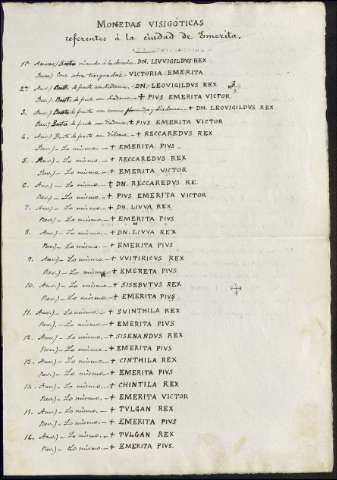 MONEDAS VISIGÓTICAS
referentes á la ciudad de Emerita.
1ª Anver) Busto mirando á la derecha DN. LIVVIGILDVS REX
Rever) Cruz sobre tres gradas. VICTORIA EMERITA
2ª Anv) Busto de frente con diadema. DN. LEOVIGILDVS REX
Rev) Busto de frente con diadema ✝ PIVS EMERITA VICTOR
3. Anv) Busto de frente con diadema ✝ DN. LEOVIGILDVS REX
Rev) Busto de frente con diadema ✝ PIVS EMERITA VICTOR
4. Anv) Busto de frente con diadema ✝ RECCAREDVS REX
Rev) Lo mismo ✝ EMERITA PIVS
5. Anv) Lo mismo ✝ RECCAREDVS REX
Rev) Lo mismo ✝ EMERITA VICTOR
6. Anv) Lo mismo ✝ DN. RECCAREDVS RE
Rev) Lo mismo ✝ PIVS EMERITA VICTOR
7. Anv) - Lo mismo ✝ DN. LIVVA REX
Rev) - Lo mismo ✝ EMERITA PIVS
8. Anv) - Lo mismo ✝ DN. LIVVA REX
Rev) - Lo mismo ✝ EMERITA PIVS
9. Anv) - Lo mismo ✝ VVITIRICVS REX
Rev) - Lo mismo ✝ EMERETA PIVS
10. Anv) - Lo mismo. - ✝ SISEBVTVS REX
Rev) - Lo mismo. - ✝ EMERITA PIVS
11. Anv) - Lo mismo. - ✝ SVINTHILA REX
Rev) - Lo mismo. - ✝ EMERITA PIVS
12. Anv) - Lo mismo. - ✝ SISENANDVS REX
Rev) - Lo mismo. - ✝ EMERITA PIVS
13. Anv) - Lo mismo. - ✝ CINTHILA REX
Rev) - Lo mismo. - ✝ EMERITA PIVS
14. Anv) - Lo mismo. - ✝ CHINTILA REX
Rev) - Lo mismo. - ✝ EMERITA VICTOR
15. Anv) - Lo mismo. - ✝ TVLGAN REX
Rev) - Lo mismo. - ✝ EMERITA PIVS
16. Anv) - Lo mismo. - ✝ TVLGAN REX
Rev) - Lo mismo. - ✝ EMERITA PIVS.